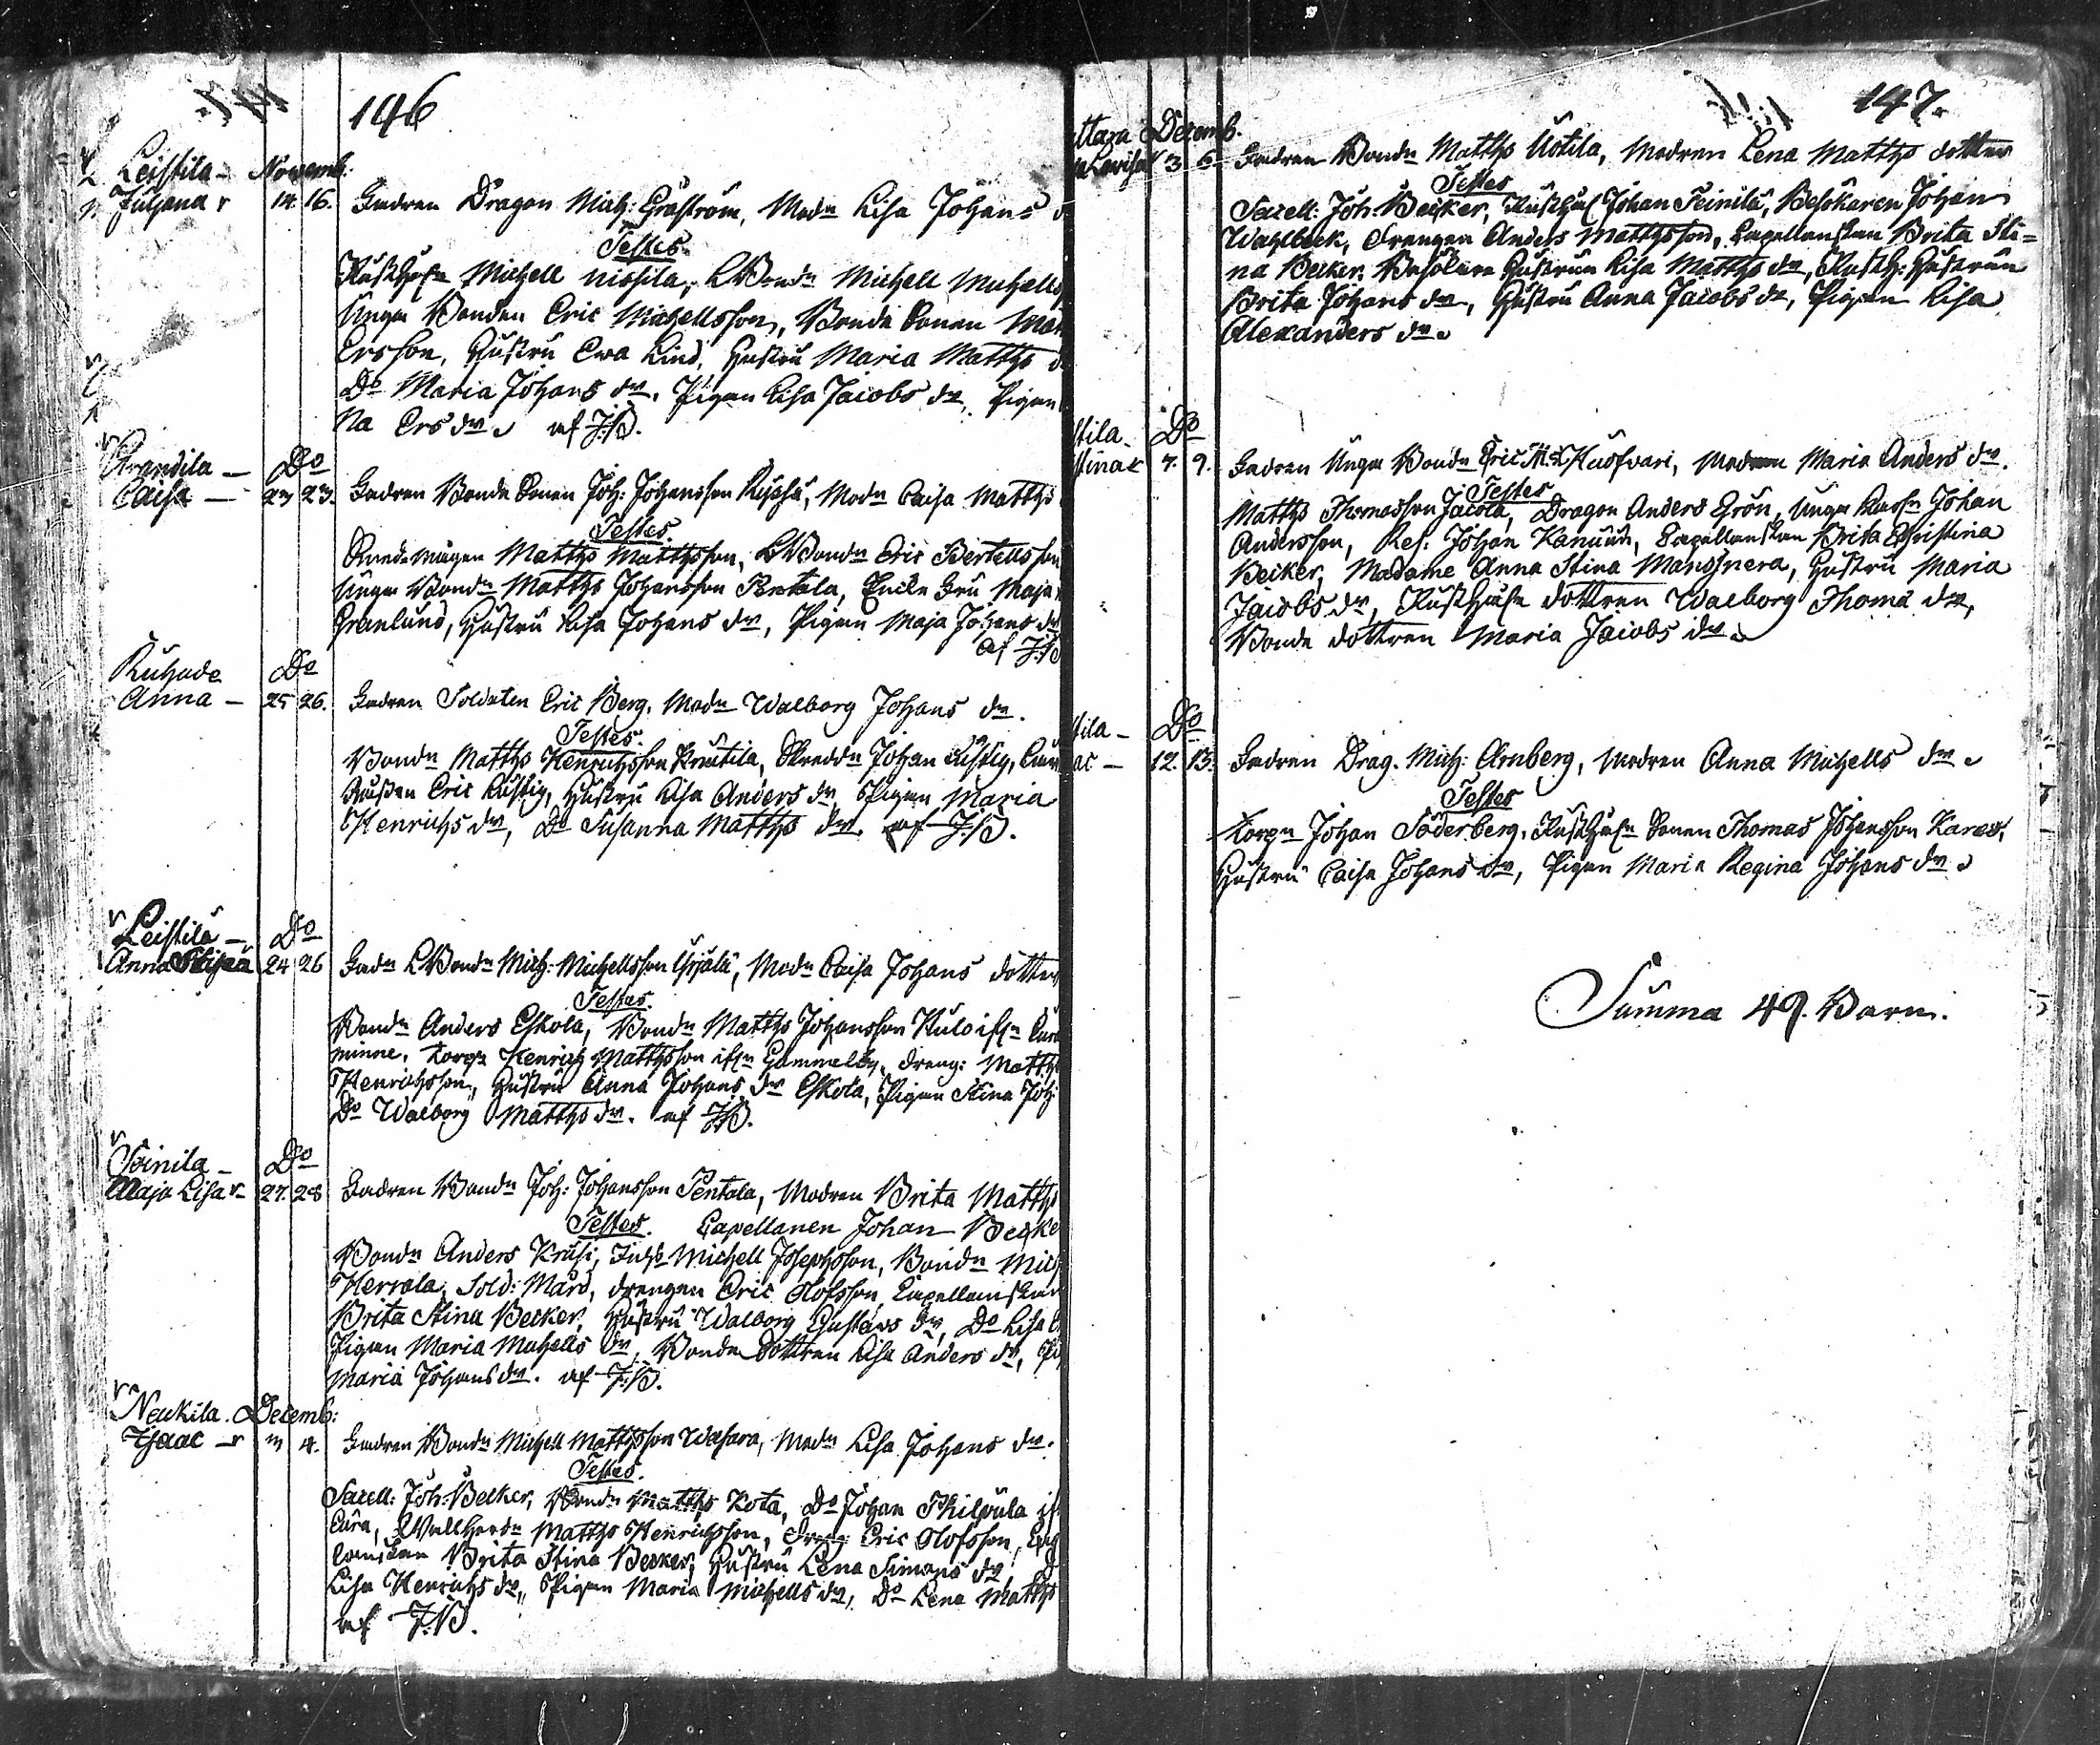 146
Leistila - Novemb:
Juliana 14. 16. Fadren Dragon Mich: Gråström, Modn Lisa Johans
Testes.
Rusthåln Michell Nissila, LBondn Michell Michells
Unga Bonden Eric Michellsson, Bonde Sonen
Ersson, Hustru Ewa Lind, Hustru Maria Matths
Do Maria Johans dr. Pigan Lisa Jacobs dr, Pigan
na Ers dr. af J:B.
Arandila - Do
Caisa - 23 23. Fadren Bonde Sonen Joh: Johansson, Modn Caisa Matths
Testes.
Matths Matthsson, LBondn Eric Bertellsson
Unga Bondn Matths Johansson Pentala, Enke Fru Maja
Granlund, Hustru Lisa Johans dr, Pigan Maja Johans dr
af J:B
Do
Anna - 25 26. Fadren Soldaten Eric Berg, Modn Walborg Johans dr.
Testes.
Bondn Matths Henrichsson, Skreddn Johan Lustig,
Eric Lustig, Hustru Lisa Anders dr, Pigan Maria
Henrichs dr, Do Susanna Matths dr. af J:B.
Leistila - Do
Anna 24 26 Fadn LBondn Mich: Michellsson Yrjälä, Modn Caisa Johans dotter
Testes.
Bondn Anders Eskola, Bondn Matths Johansson Kulo ifrn
minne, Korpn Henrich Matthsson ifrn Gammelby, Dreng: Matths
Henrichsson, Hustru Anna Johans dr Eskola, Pigan Stina Joh:
Do Walborg Matths dr. af J:B.
Soinila - Do
Maja Lisa 27. 28 Fadren Bondn Joh: Johansson Pentala, Modren Brita Matths
Testes. Capellanen Johan Becke
Bondn Anders Krusi, Michell Josephsson, Bondn Mich
Herrala, Sold: Mård, drengen Eric Olofsson, Capellanskan
Brita Stina Becker, Hustru Walborg Gustavs dr, Do Lisa
Pigan Maria Michells dr, Bonde Dottren Lisa Anders dr,
Maria Johans dr. af J:B.
Neukila. Decemb:
Isaac 3 4. Fadren Bondn Michell Matthsson Wasara, Modn Lisa Johans dr.
Testes.
Sacell: Joh: Becker, Bondn Matths Kota, Do Johan Philpula
Matths Henrichsson, Dreng: Eric Olofsson,
lanskan Brita Stina Becker, Hustru Lena Simons dr,
Lisa Henrichs dr, Pigan Maria Michells dr, Do Lena Matths
af J:B.
147.
ttara Decemb.
3 6 Fadren Bondn Matths Uotila, Modren Lena Matths dotter
Testes
Sacell: Joh: Becker, Rusthål Johan Seinilä, Besökaren Johan
Wahlbeck, Drengen Anders Matthsson, Capellanskan Brita Sti=
na Becker, Hustrun Lisa Matths dr, Rusth: Hustrun
Brita Johans dr, Hustru Anna Jacobs dr, Pigan Lisa
Alexanders dr.
stila - Do
stina 7. 9. Fadren Unga Bondn Eric, Modren Maria Anders dr.
Testes
Matths Thomasson Jacola, Dragon Anders Grön, Unga Johan
Andersson, Ref: Johan, Capellanskan Brita Christina
Becker, Madame Anna Stina Mansnera, Hustru Maria
Jacobs dr, Rusthåls dottren Walborg Thomä dr,
Bonde dottren Maria Jacobs dr
tila - Do
ac - 12. 13. Fadren Drag. Mich: Arnberg, Modren Anna Michells dr.
Testes
Korpn Johan Söderberg, Rusthåln Sonen Thomas Johansson
Hustru Caisa Johans dr, Pigan Maria Regina Johans dr.
Summa 49. Barn.